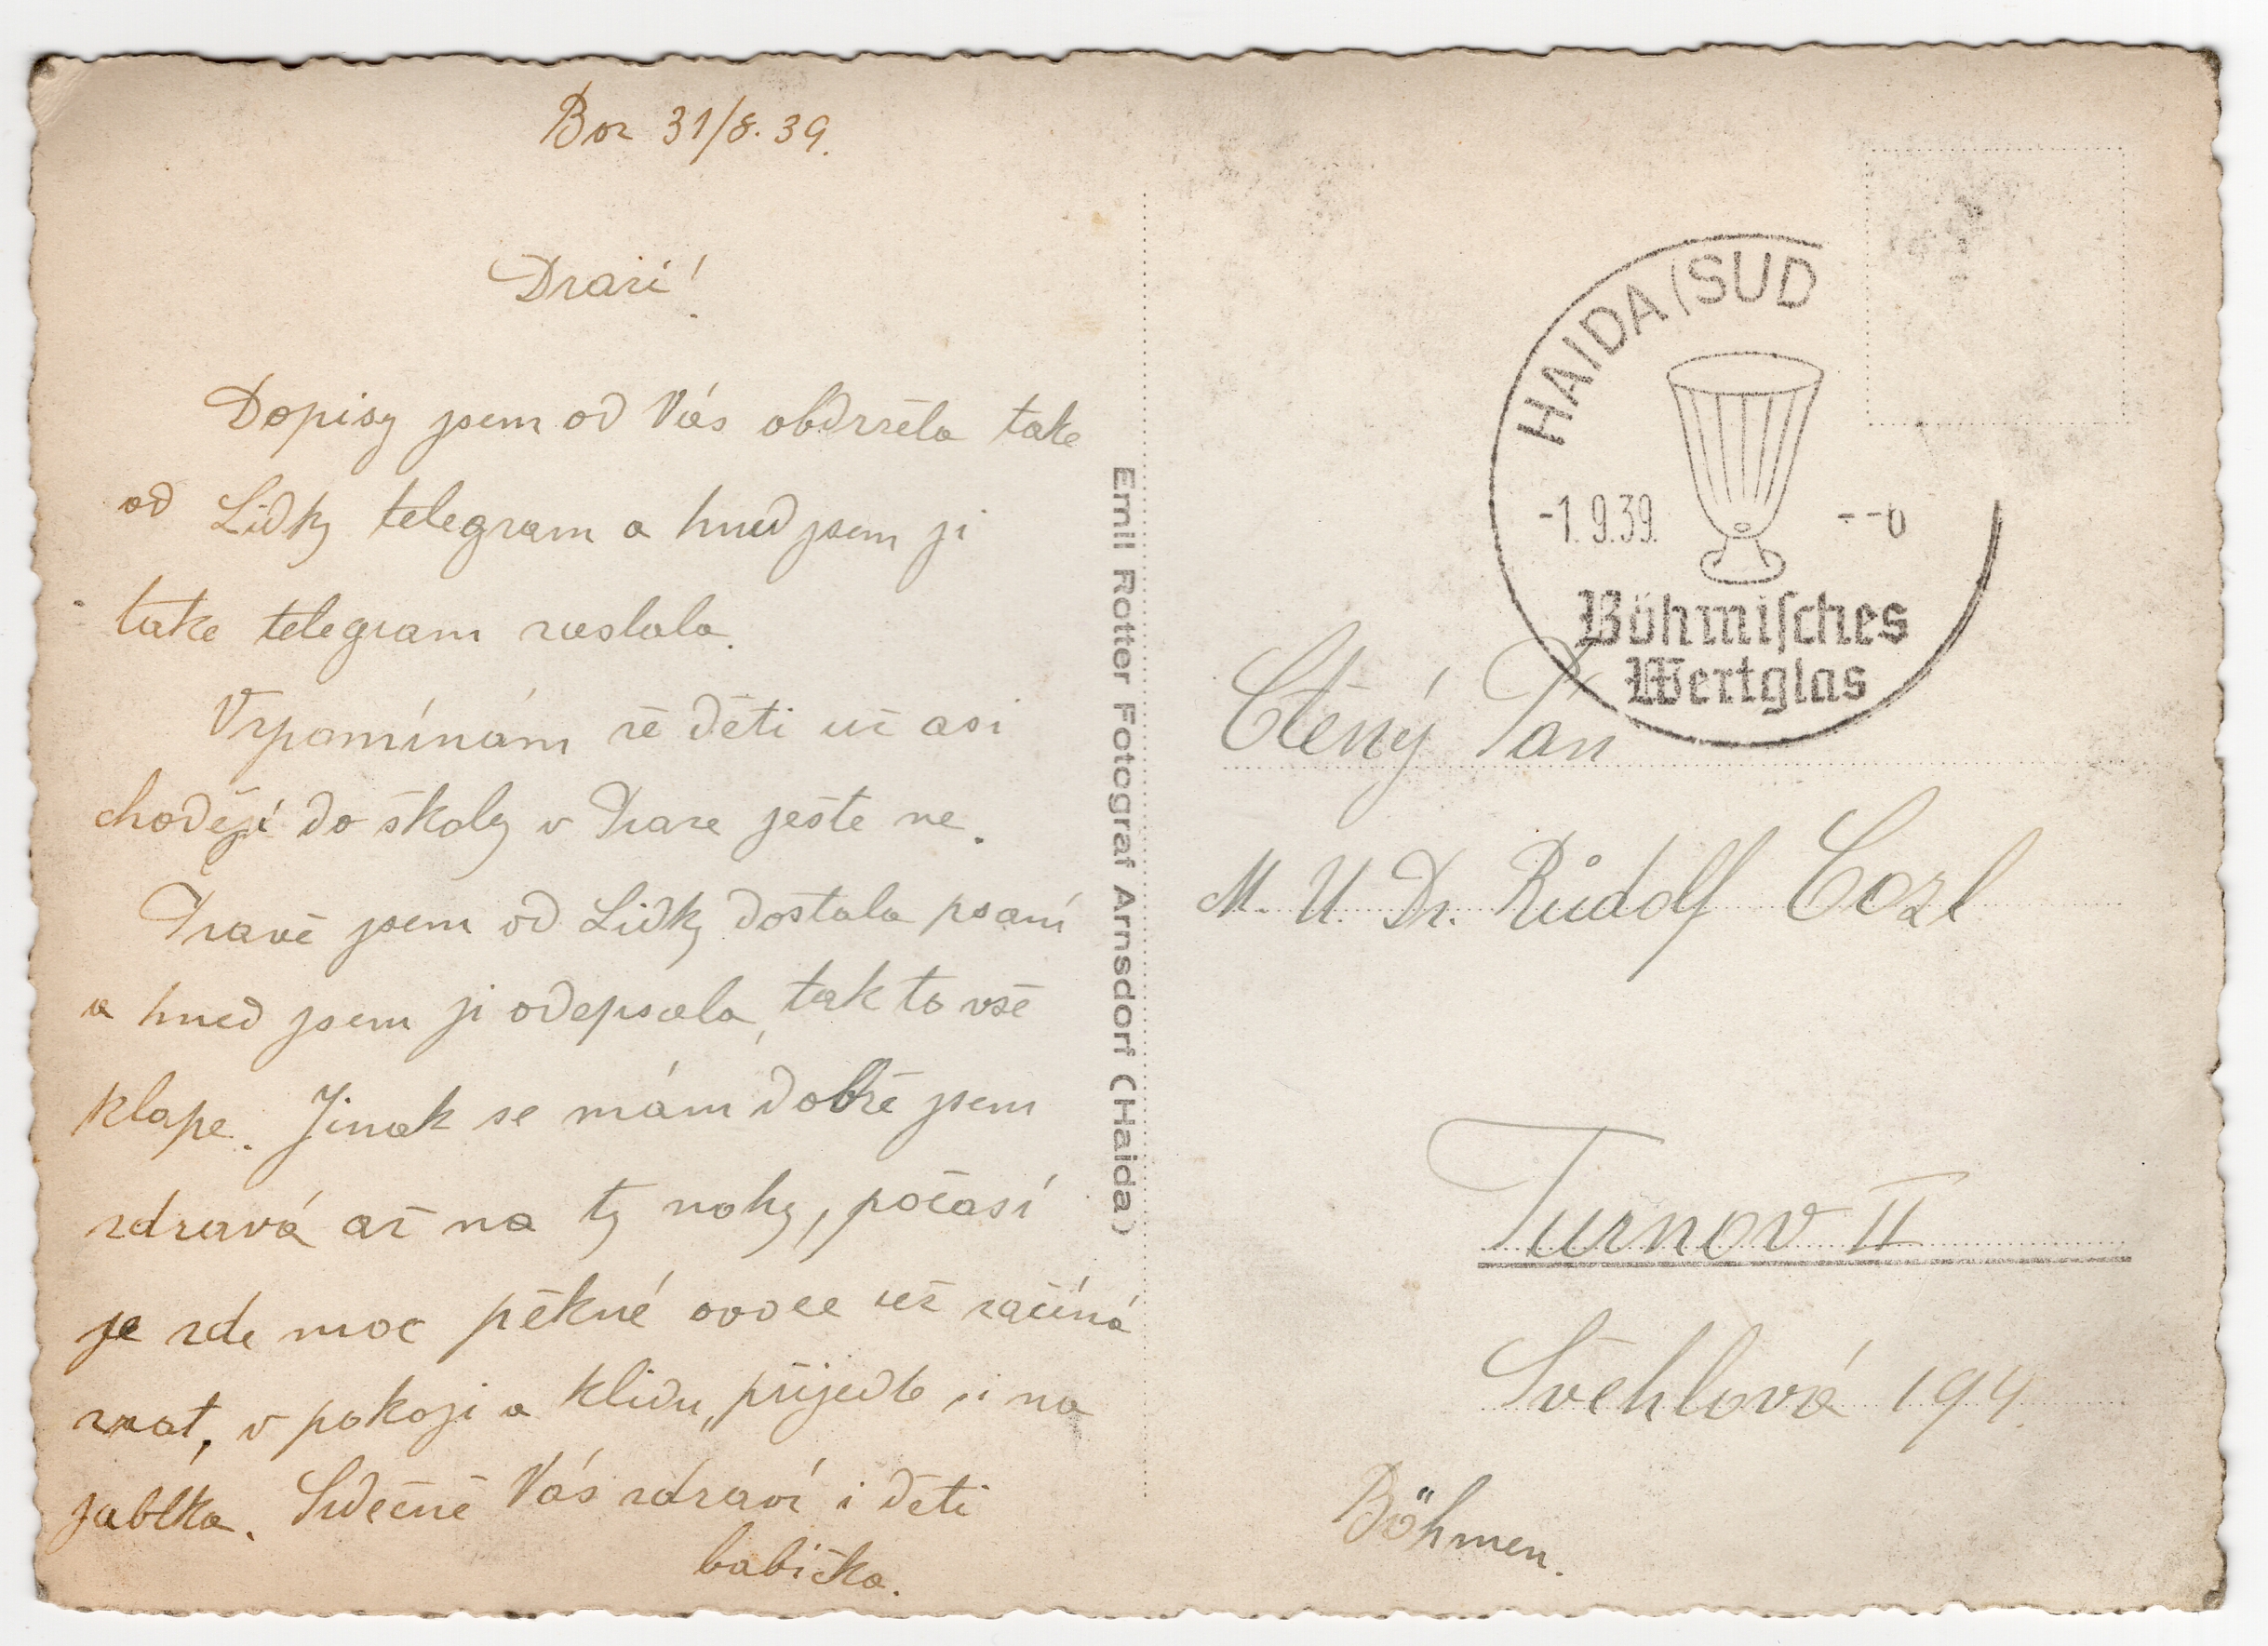 Bor 31/8. 39.
Drazí!
Dopisy jsem od Vás obdržela take
od Lidky telegram a hned jsem ji
take telegram zaslala.
Vzpomínám že děti už asi
chodějí do školy v Praze ještě ne.
Pravě jsem od Lidky dostala psaní
a hned jsem ji odepsala, tak to vše
klape. Jinak se mám dobře jsem
zdravá až na ty nohy, počasí
je zde moc pěkné ovoce už začíná
zrat, v pokoji a klidu, přijedte si na
jablka. Srdečně Vás zdraví i děti
babička.
Emil Rotter Fotograf Arnsdorf (Haida)
HAIDA (SUD
-1.9.39. --0
Böhmisches
Wertglas
Ctěný Pan
M. U. Dr. Růdolf Cozl
Turnov II
Švehlová 194.
Böhmen.